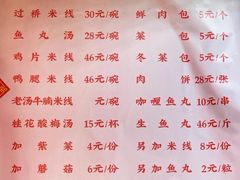 过桥米线 30元/碗 鲜肉包 5元/个
鱼丸汤 28元/碗 素菜包 5元/个
鸡片米线 46元/碗 冬菜包 5元/个
鸭腿米线 46元/碗 肉饼 28元/张
老汤牛腩米线 元/碗 咖喱鱼丸 10元/串
桂花酸梅汤 15元/杯 生鱼丸 46元/斤
加紫菜 4元/份 另加米线 8元/份
加蘑菇 6元/份 另加鱼丸 2元/粒